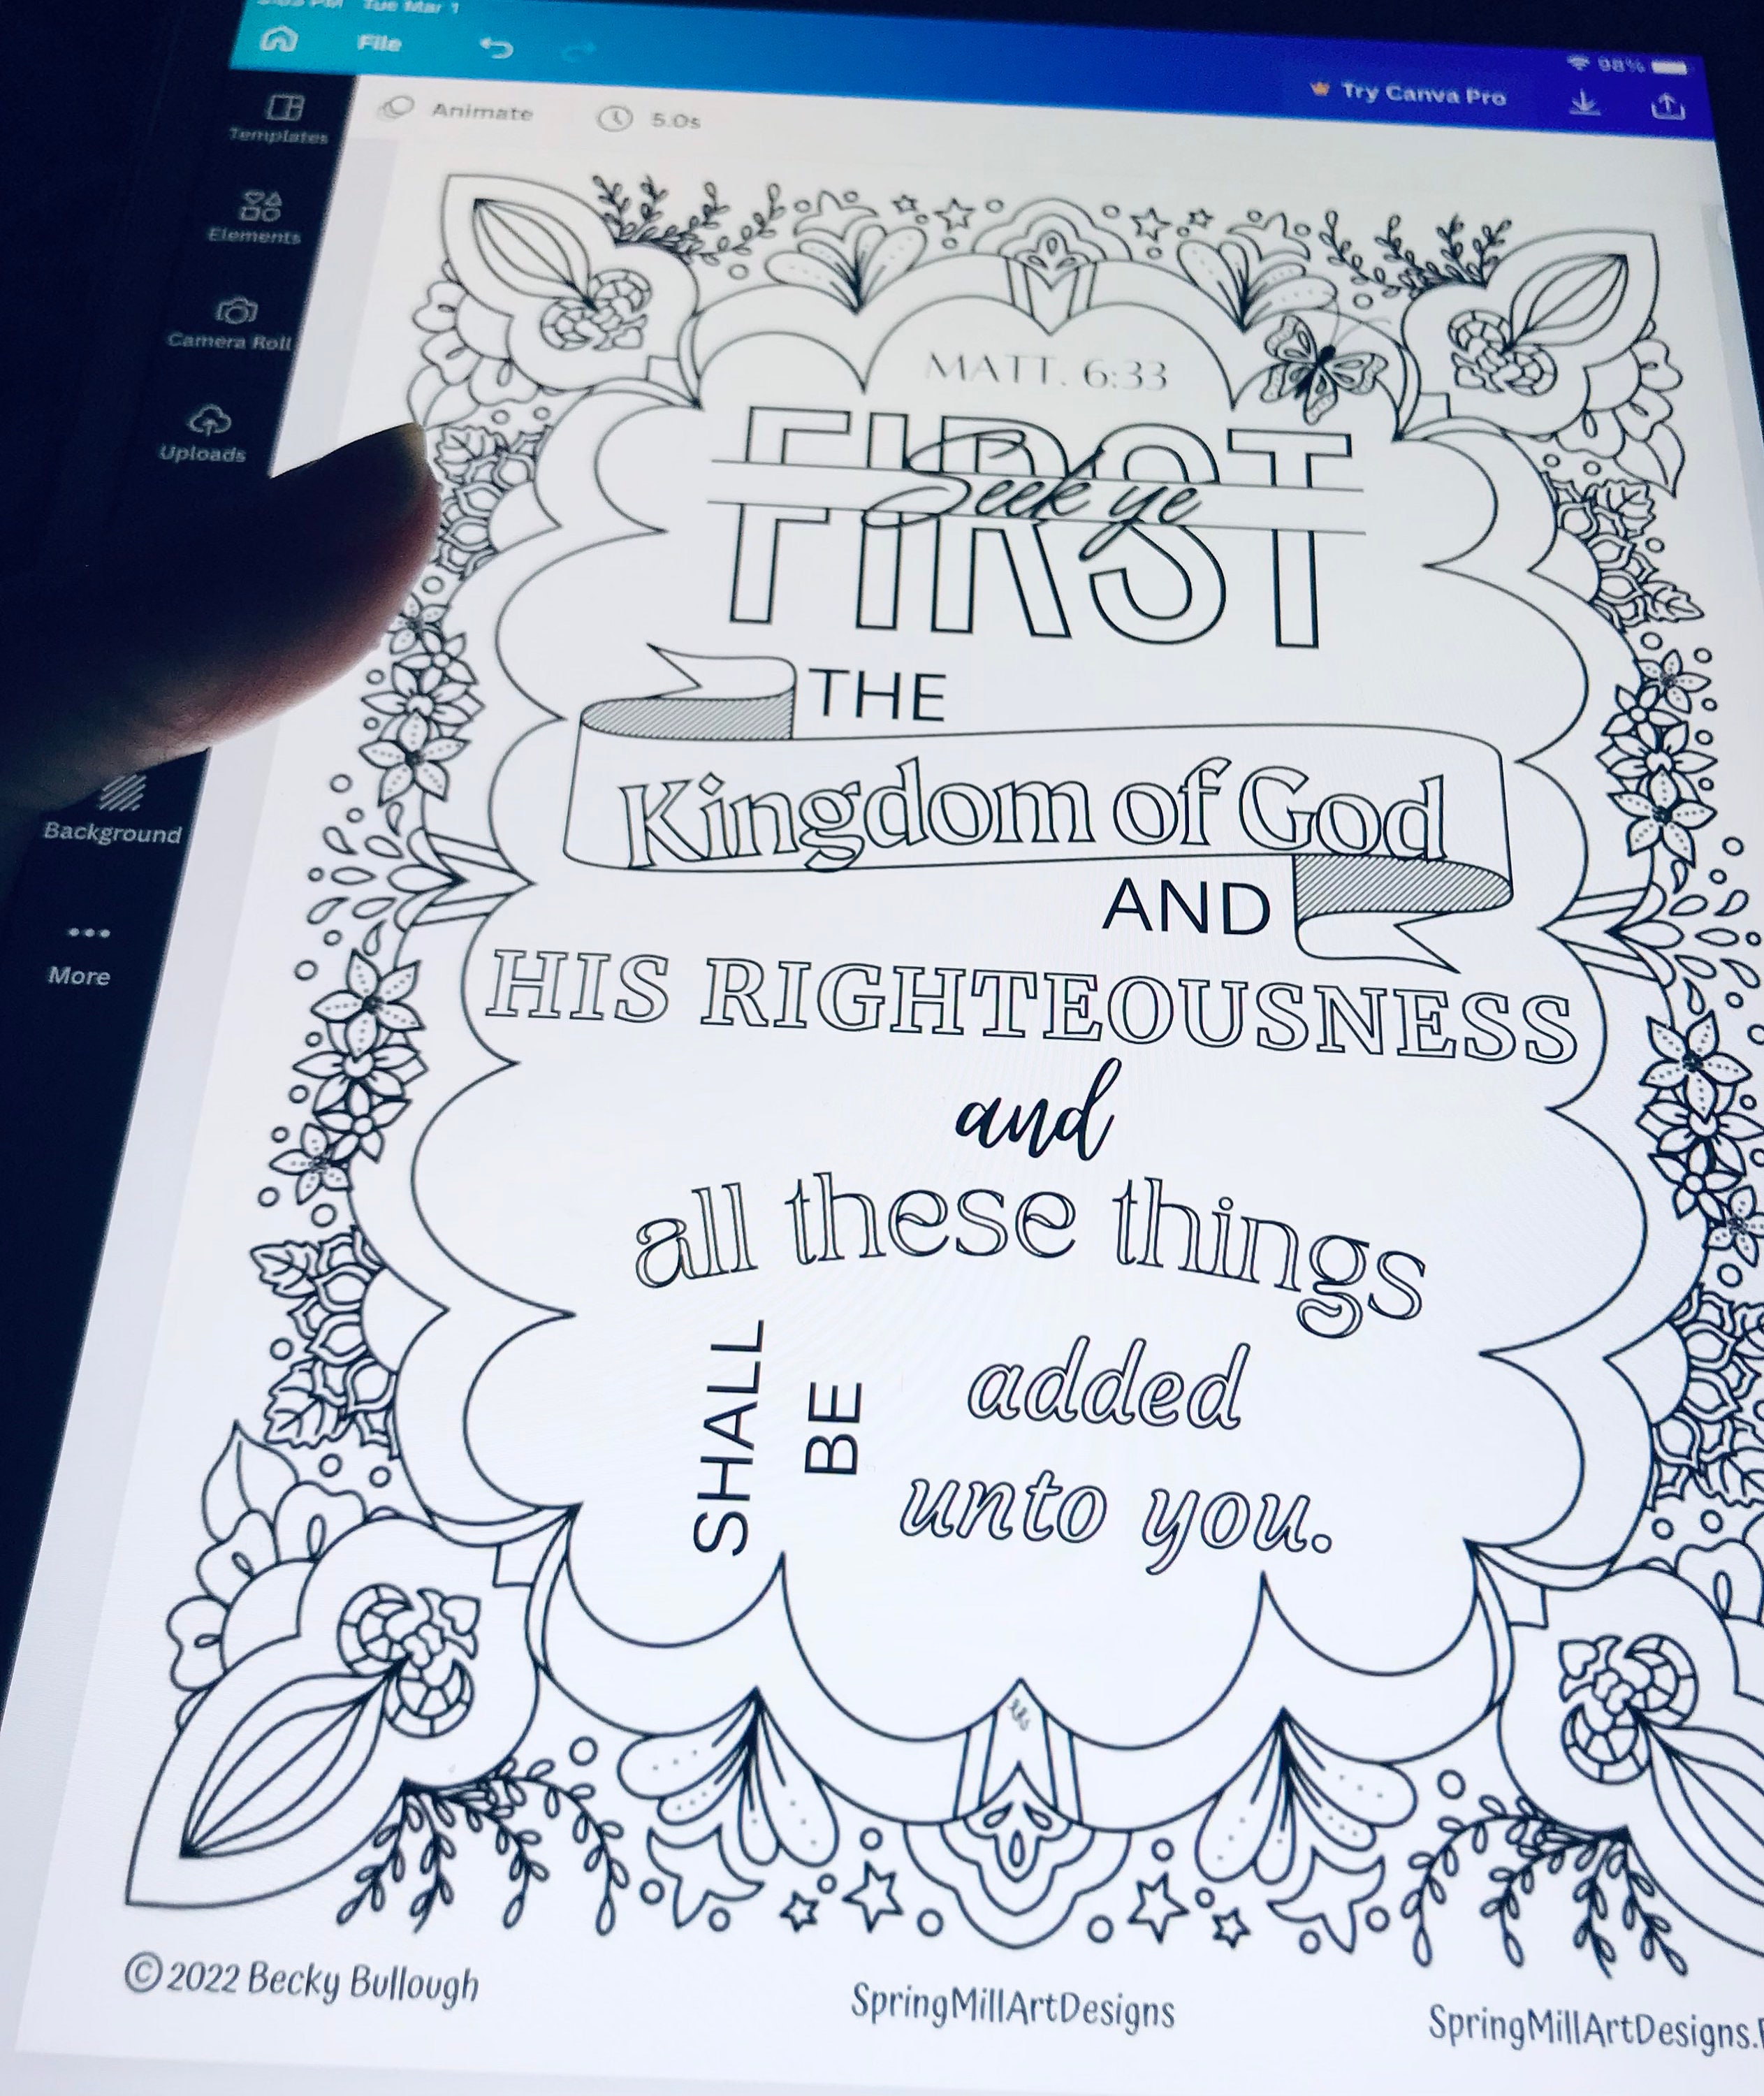 Tue Mar 1
File
98%
Try Canva Pro
Animate
5.0s
Templates
Elements
Camera Roll
Uploads
Background
More
MATT. 6:33
FIRST
Seek ye
THE
Kingdom of God
AND
HIS RIGHTEOUSNESS
and
all these things
SHALL
BE
added
unto you.
© 2022 Becky Bullough
SpringMillArtDesigns
SpringMillArtDesigns.